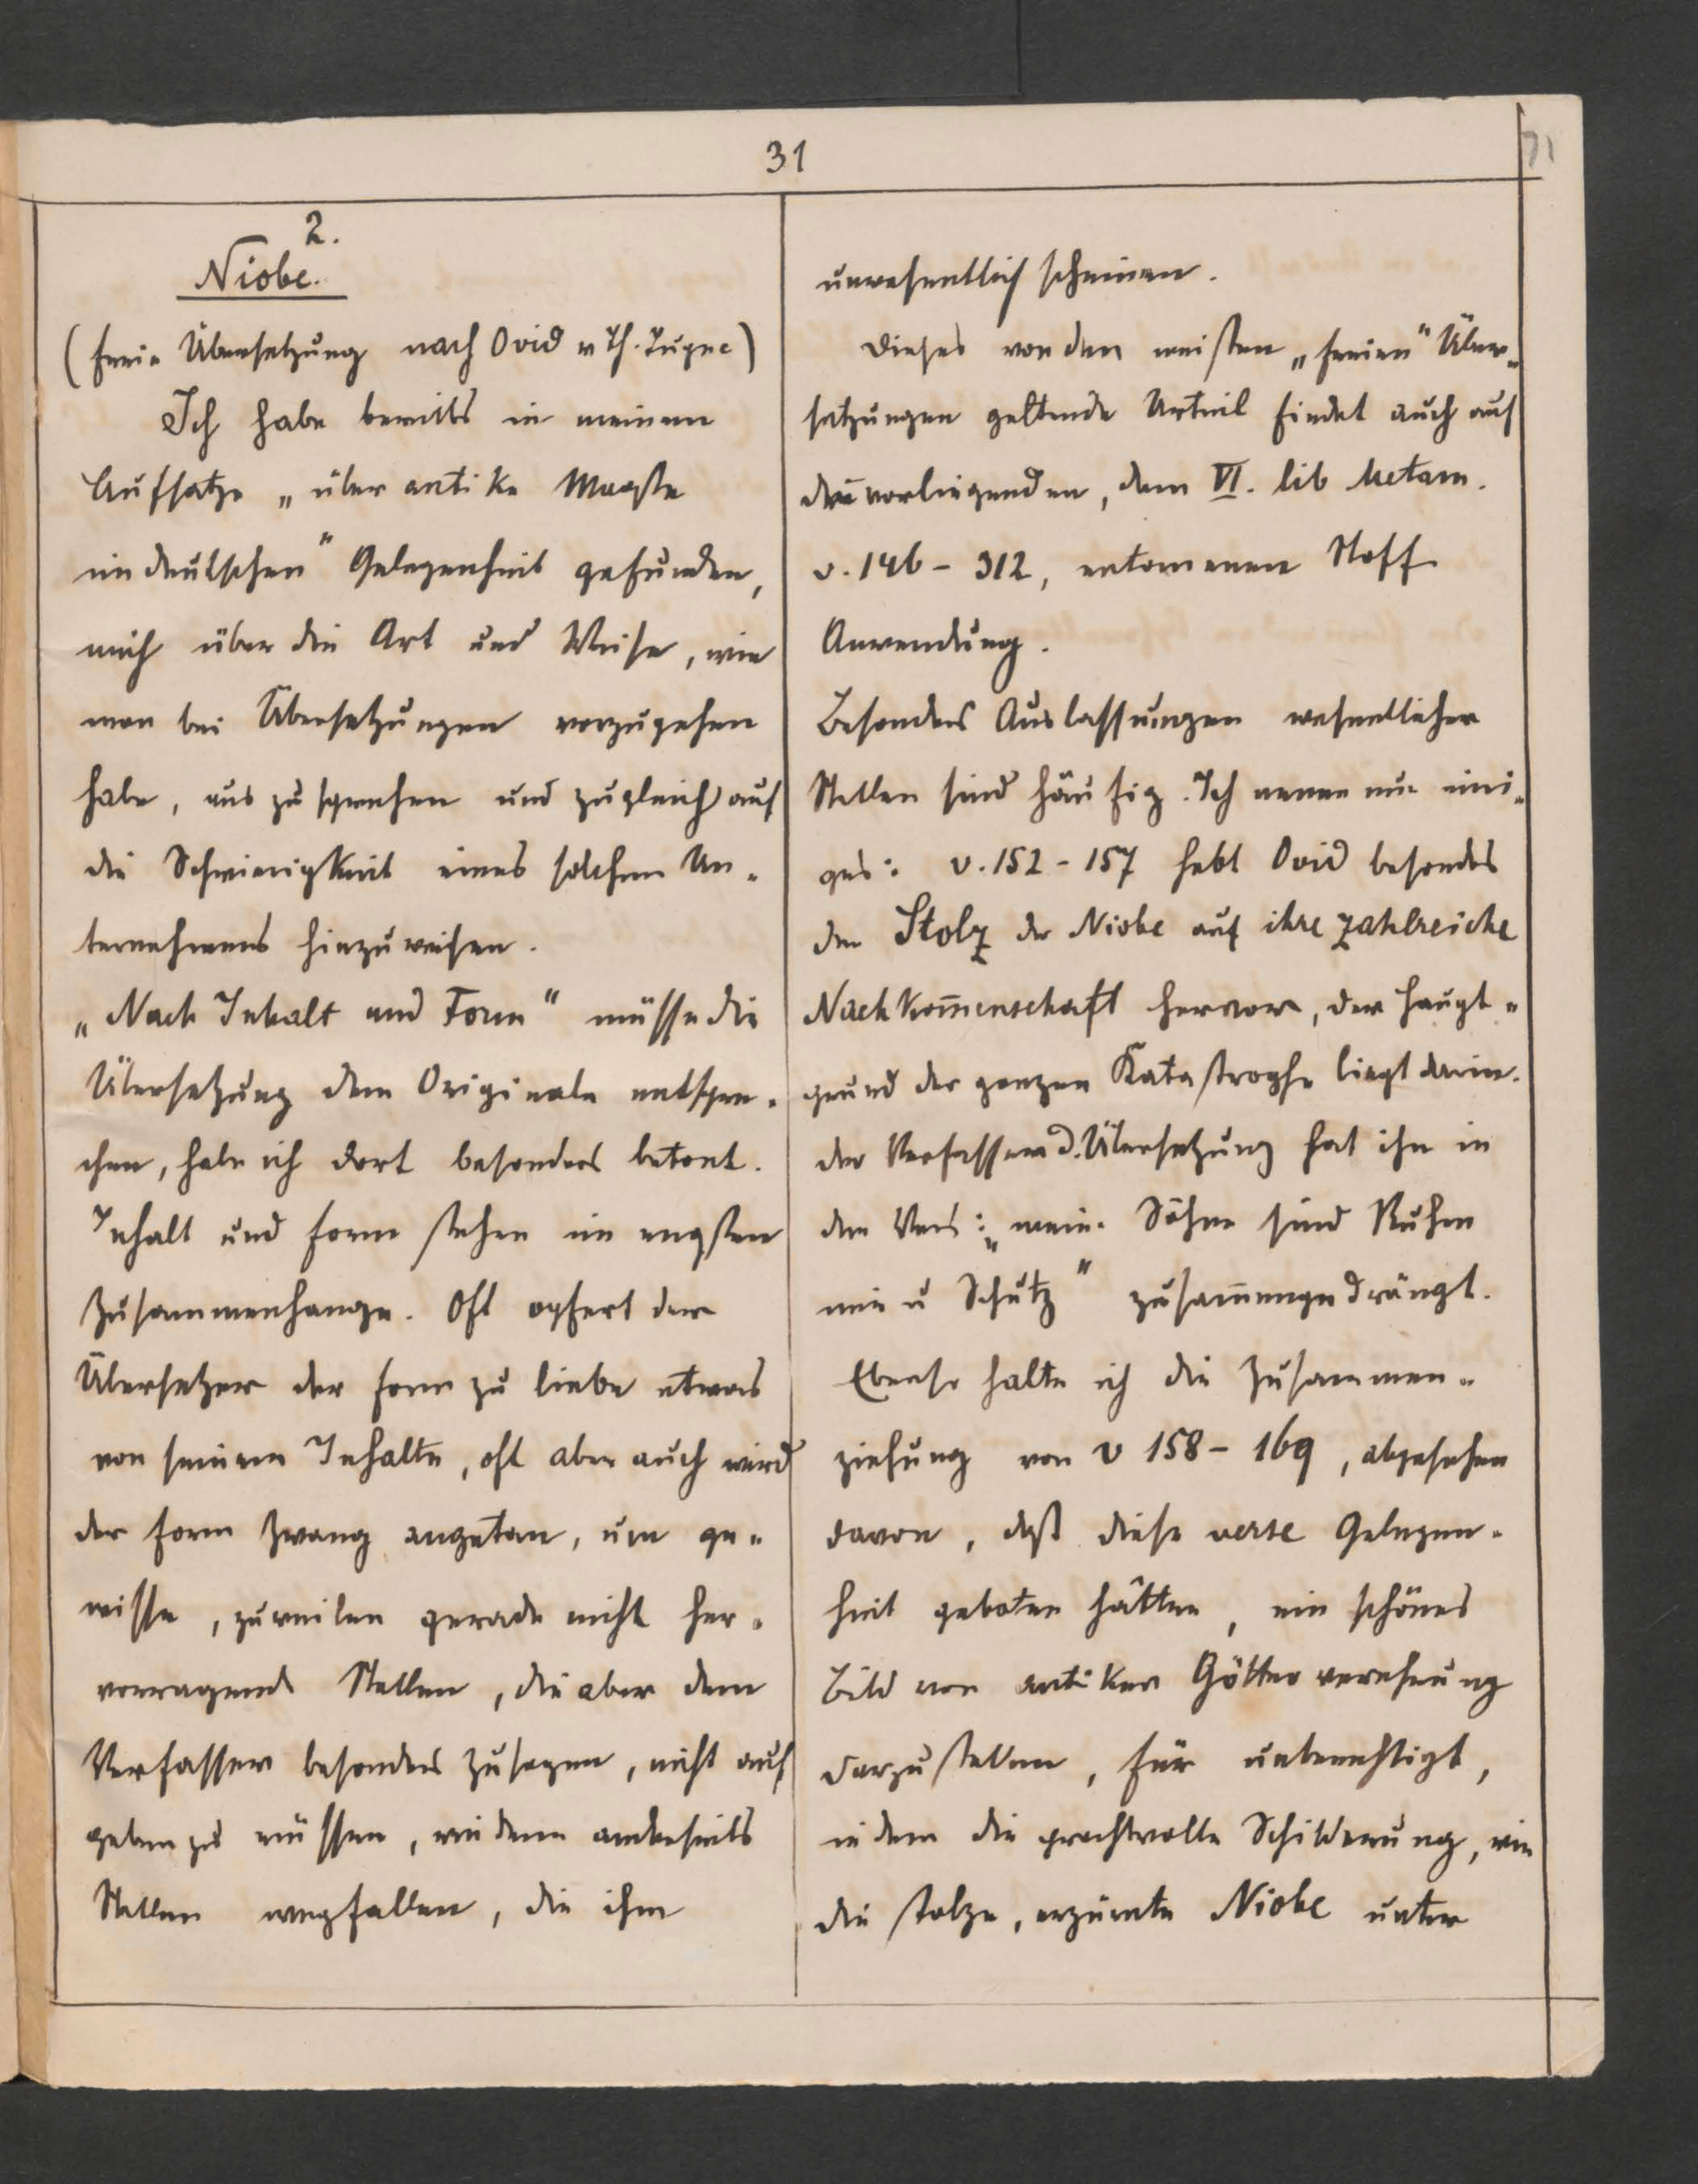 31
2.
Niobe.
(freie Übersetzung nach Ovid v Th.
Ich habe bereits in meinem
Aufsatze „über antike Maaße
im deutschen" Gelegenheit gefunden,
mich über die Art und Weise, wie
man bei Übersetzungen vorzugehen
habe, auszusprechen und zugleich auf
die Schwierigkeit eines solchen Un-
ternehmens hinzuweisen.
„Nach Inhalt und Form" müsse die
Übersetzung dem Originale entspre-
chen, habe ich dort besonders betont.
Inhalt und Form stehen im engsten
Zusammenhange. Oft opfert der
Übersetzer der Form zu liebe etwas
von seinem Inhalte, oft aber auch wird
der Form Zwang angetan, um ge-
wisse, zuweilen gerade nicht her-
vorragende Stellen, die aber dem
Verfasser besonders zusagen, nicht auf
geben zu müssen, wie denn anderseits
Stellen wegfallen, die ihm
unwesentlich scheinen.
Dieses von den meisten „freien" Über-
setzungen geltende Urteil findet auch auf
den vorliegenden, dem VI. lib Metam.
v. 146 - 312, entomenen Stoff
Anwendung.
Besonders Auslassungen wesentlicher
Stellen sind häufig. Ich nenne nur eini-
ges: v. 152 - 157 hebt Ovid besonders
den Stolz der Niobe auf ihre zahlreiche
Nachkom̄enschaft hervor, der Haupt-
grund der ganzen Katastrophe liegt darin.
der Verfasser d. Übersetzung hat ihn in
den Vers: „meine Söhne sind Ruhm
mir u Schutz" zusam̄engedrängt.
Ebenso halte ich die Zusammen-
ziehung von v 158 - 169, abgesehen
davon, daß diese verse Gelegen-
heit geboten hätten, ein schönes
Bild von antiker Götterverehrung
darzustellen, für unberechtigt,
indem die prachtvolle Schilderung, wie
die stolze, erzürnte Niobe unter